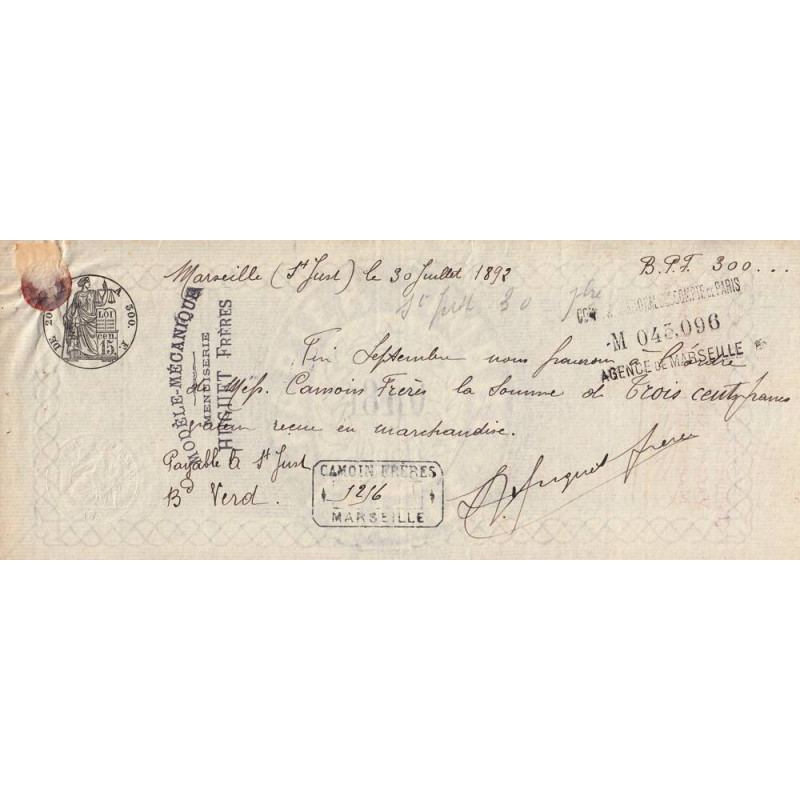 Marseille (St Just) le 30 Juillet 1892 B.P.F. 300...
St Just 30 7bre
COMPTOIR NATIONAL D'ESCOMPTE DE PARIS
M 043.096
AGENCE DE MARSEILLE
DE 200 A 300 F.
LOI
cen.
15
MODÈLE-MÉCANIQUE
MENUISERIE
HUGUET FRÈRES
Fin Septembre nous paierons à l'ordre
de Mess. Camoin Frères la Somme de Trois cents francs
valeur reçue en marchandise.
Payable à St Just
Bd Verd.
CAMOIN FRÈRES
1216
MARSEILLE
Huguet frères